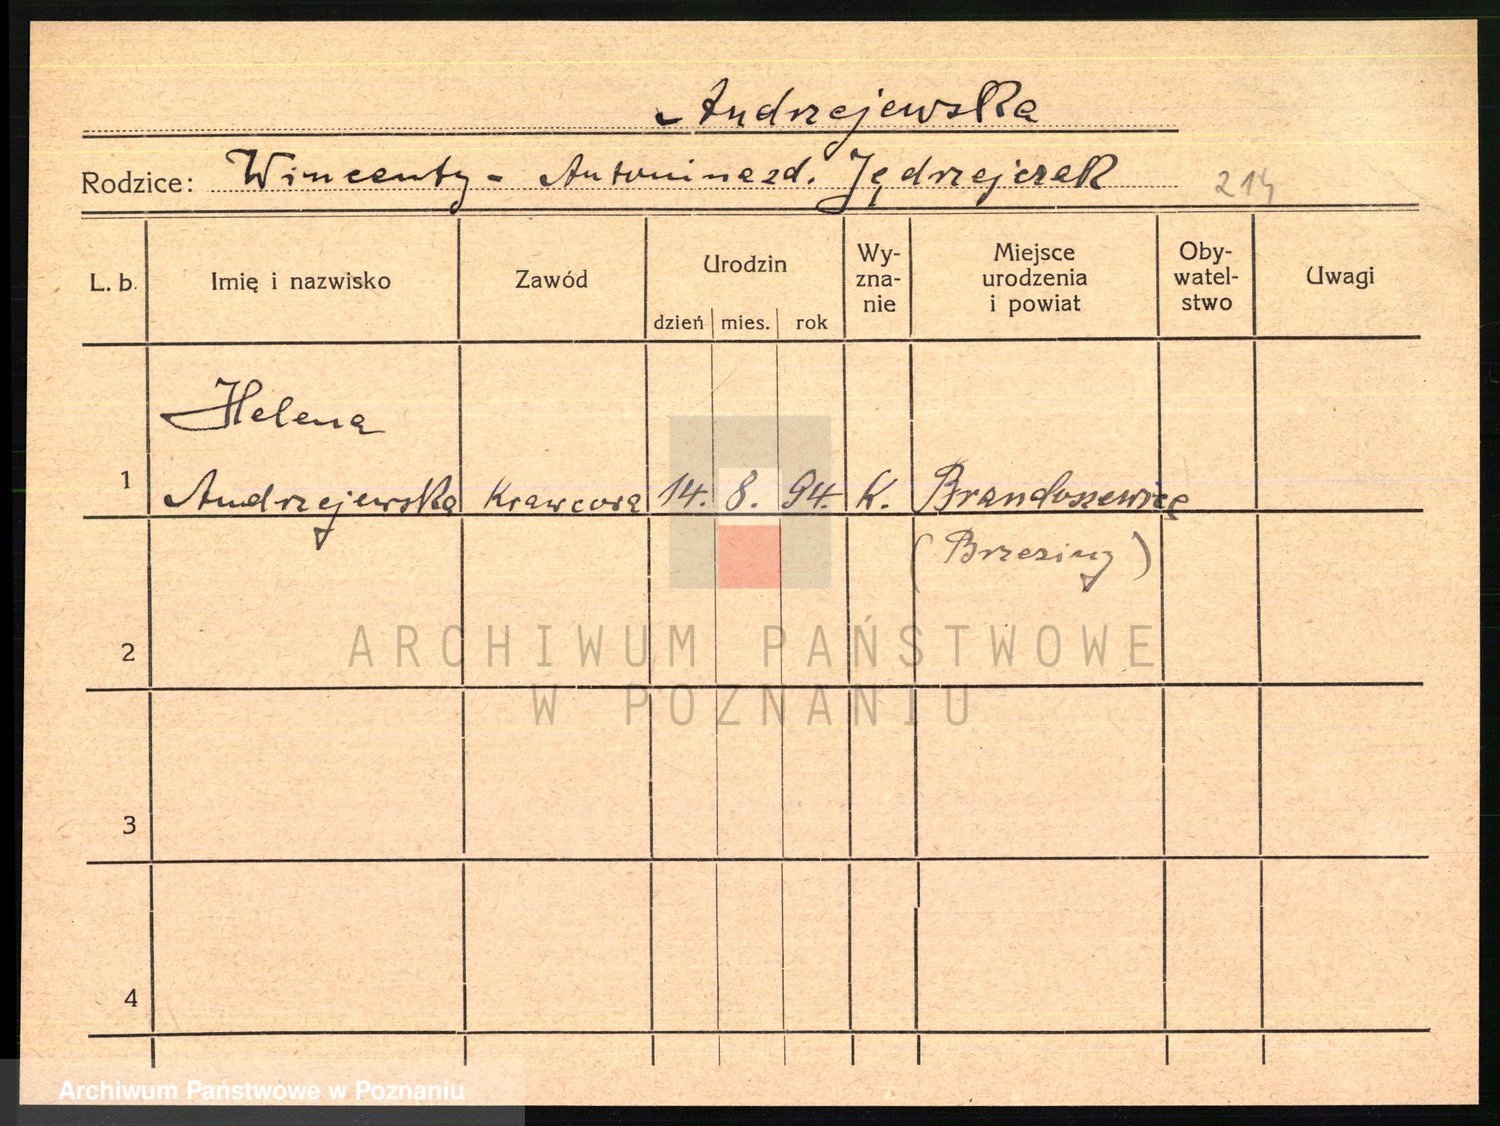 Andrzejewska
Rodzice: Wincenty - Antonina zd. Jędrzejczak
214
L. b. Imię i nazwisko Zawód Urodzin dzień mies. rok Wy-zna-nie Miejsce urodzenia i powiat Oby-watel-stwo Uwagi
Helena
1 Andrzejewska Krawcowa 14. 8. 94. K.
(Brzeziny)
2
ARCHIWUM PAŃSTWOWE
W POZNANIU
3
4
Archiwum Państwowe w Poznaniu